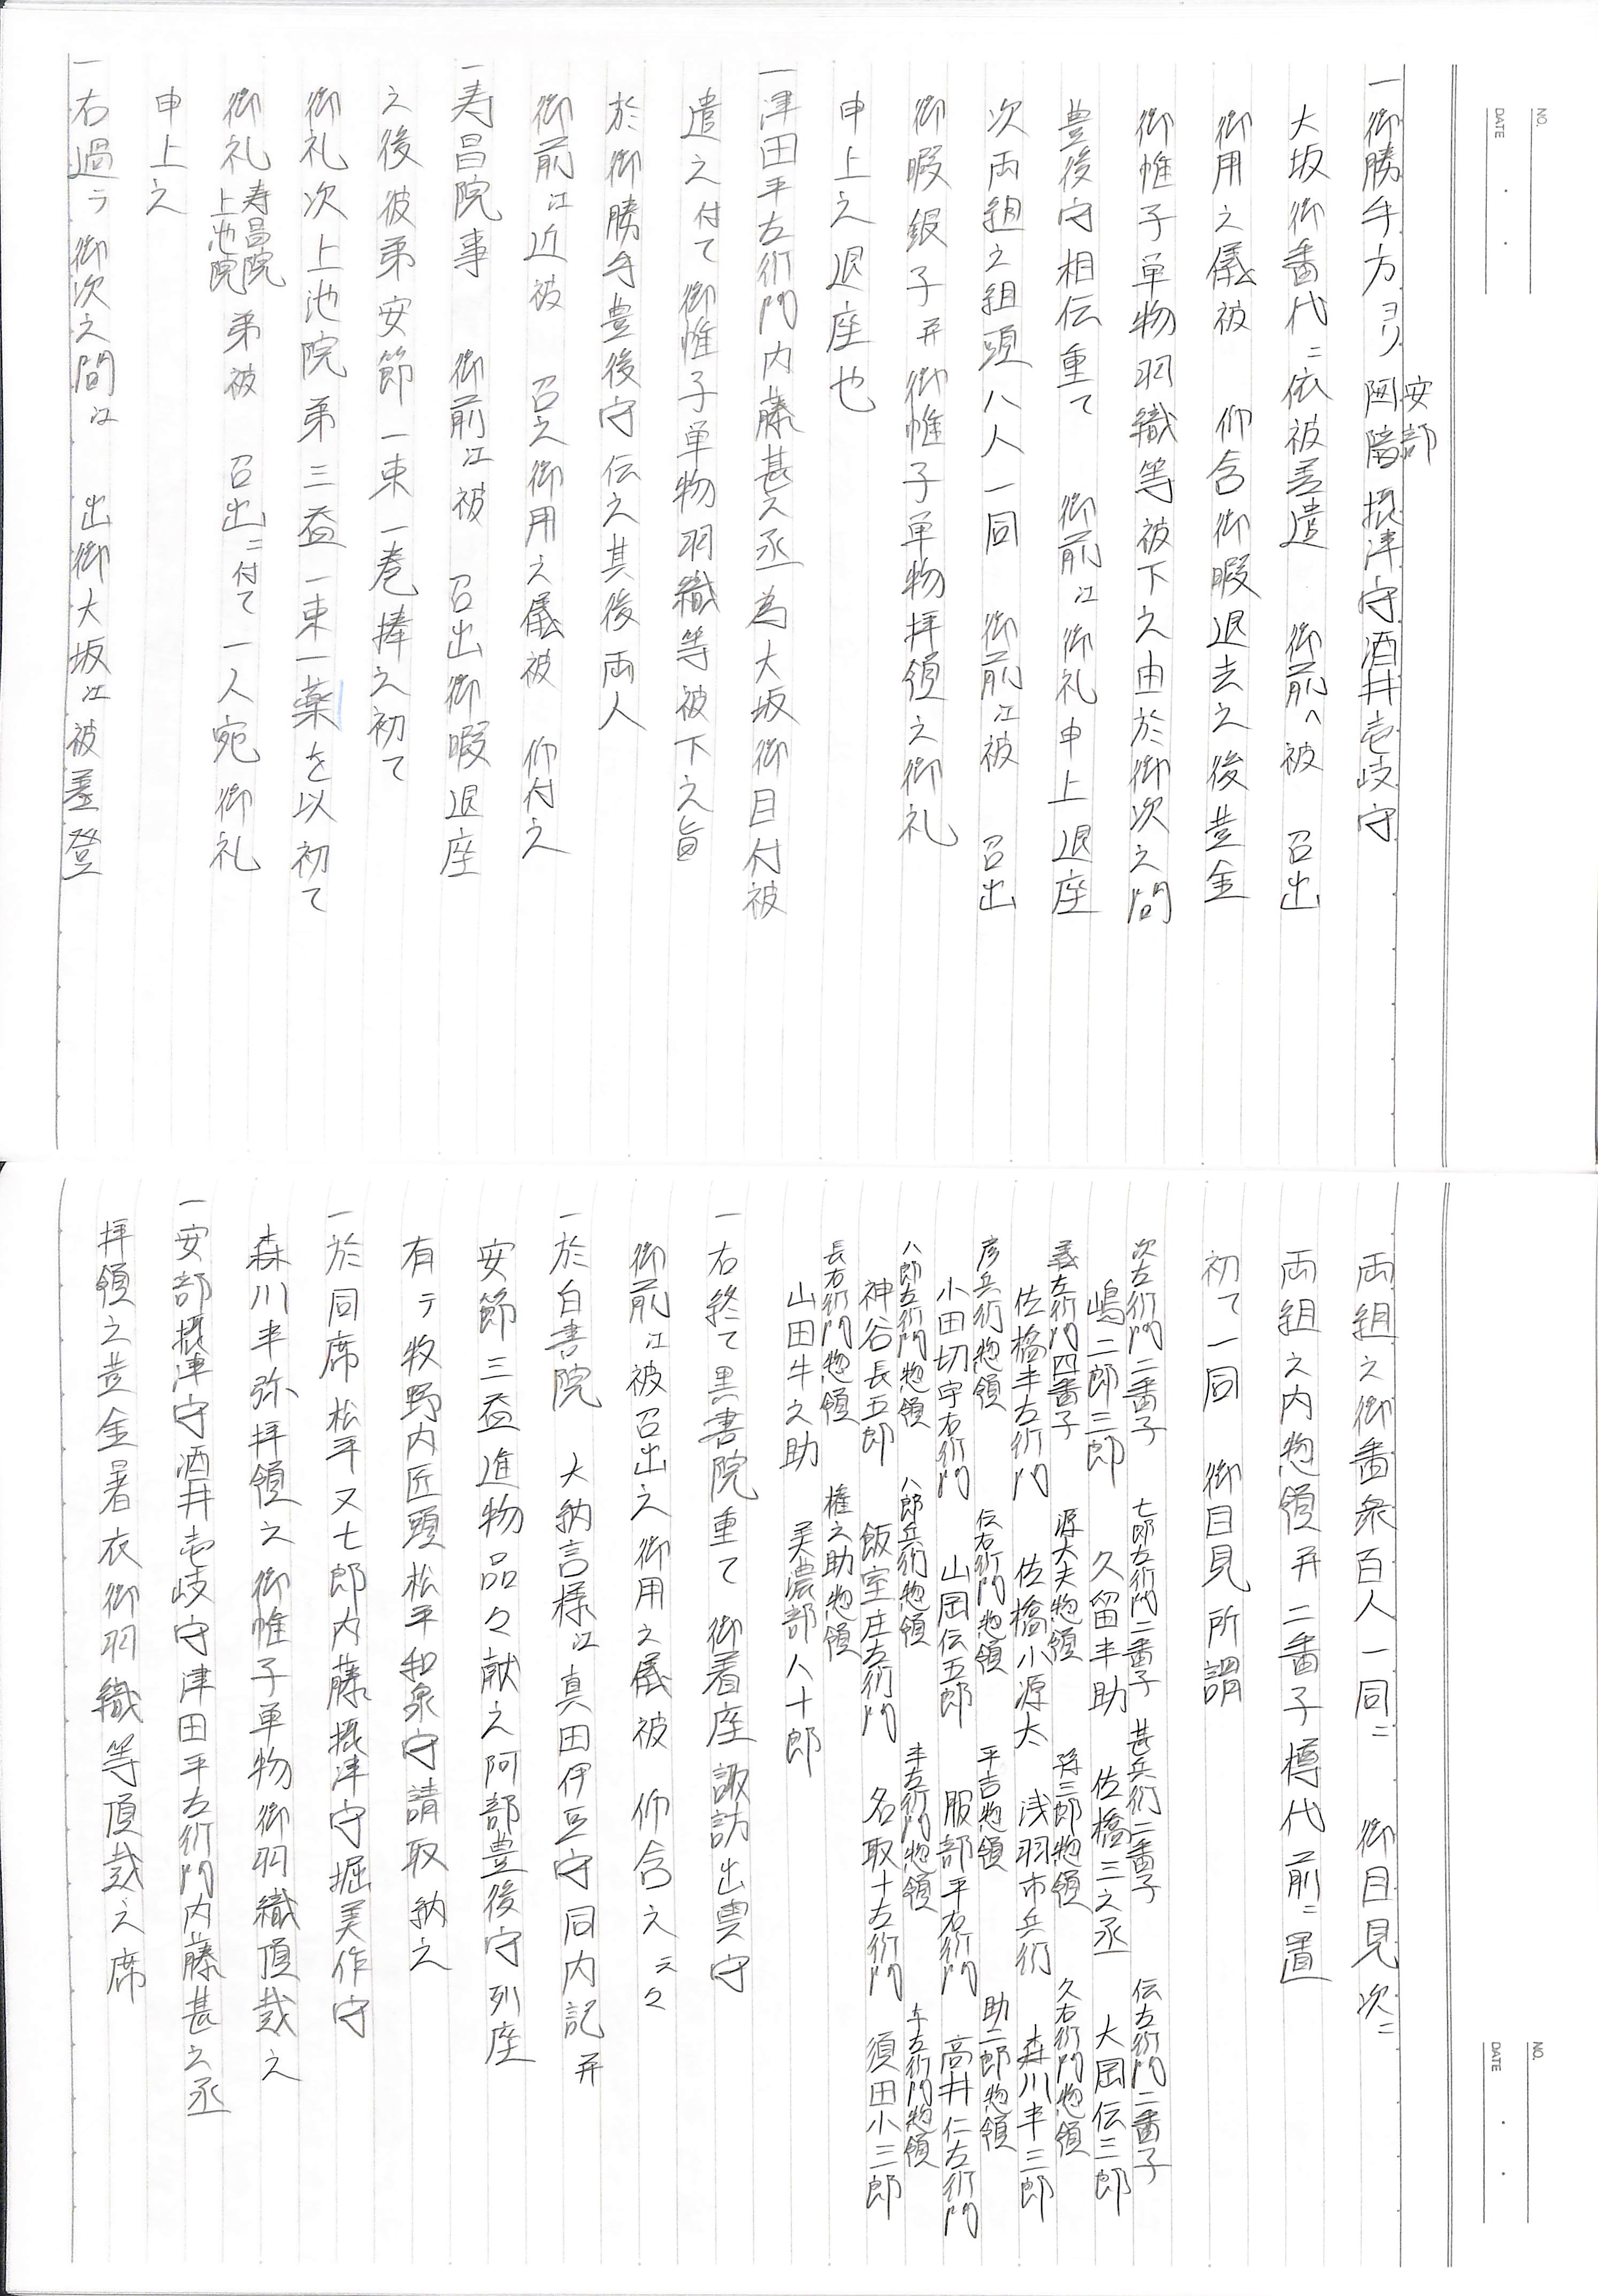 NO.
DATE
安部
一御勝手方ヨリ阿陪摂津守酒井壱岐守
大坂御番代ニ依被差遣 御前へ被 召出
御用之儀被 仰含御暇退去之後黄金
御帷子単物羽織等被下之由於御次之間
豊後守相伝重て 御前江御礼申上退座
次両組之組頭八人一同 御前江被 召出
御暇銀子并御帷子単物拝領之御礼
申上之退座也
一津田平左衛門内藤甚之丞為大坂御目付被
遣之付て御帷子単物羽織等被下之旨
於御勝手豊後守伝之其後両人
御前江近被 召之御用之儀被 仰付之
一寿昌院事 御前江被 召出御暇退座
之後彼弟安節一束一巻捧之初て
御礼次上池院弟三益一束一薬を以初て
御礼寿昌院上池院弟被 召出ニ付て一人宛御礼
申上之
一右過テ御次之間江 出御大坂江被差登
NO.
DATE
両組之御番衆百人一同ニ 御目見次ニ
両組之内惣領并二番子樽代前ニ置
初て一同 御目見所謂
次左衛門二番子 七郎左衛門二番子 甚兵衛二番子 伝左衛門二番子
嶋二郎三郎 久留半助 佐橋三之丞 大岡伝三郎
義左衛門四番子 源大夫惣領 孫三郎惣領 久右衛門惣領
佐橋半左衛門 佐橋小源太 浅羽市兵衛 森川半三郎
彦兵衛惣領 伝右衛門惣領 平吉惣領 助二郎惣領
小田切宇右衛門 山岡伝五郎 服部平右衛門 高井仁左衛門
八郎左衛門惣領 八郎兵衛惣領 半左衛門惣領 与左衛門惣領
神谷長五郎 飯室庄左衛門 名取十左衛門 須田小三郎
長右衛門惣領 権之助惣領
山田牛之助 美濃部八十郎
一右終て黒書院重て御着座諏訪出雲守
御前江被召出之御用之儀被 仰含之云々
一於白書院 大納言様江真田伊豆守同内記并
安節三益進物品々献之阿部豊後守列座
有テ牧野内匠頭松平和泉守請取納之
一於同席松平又七郎内藤摂津守堀美作守
森川半弥拝領之御帷子単物御羽織頂戴之
一安部摂津守酒井壱岐守津田平左衛門内藤甚之丞
拝領之黄金暑衣御羽織等頂戴之席